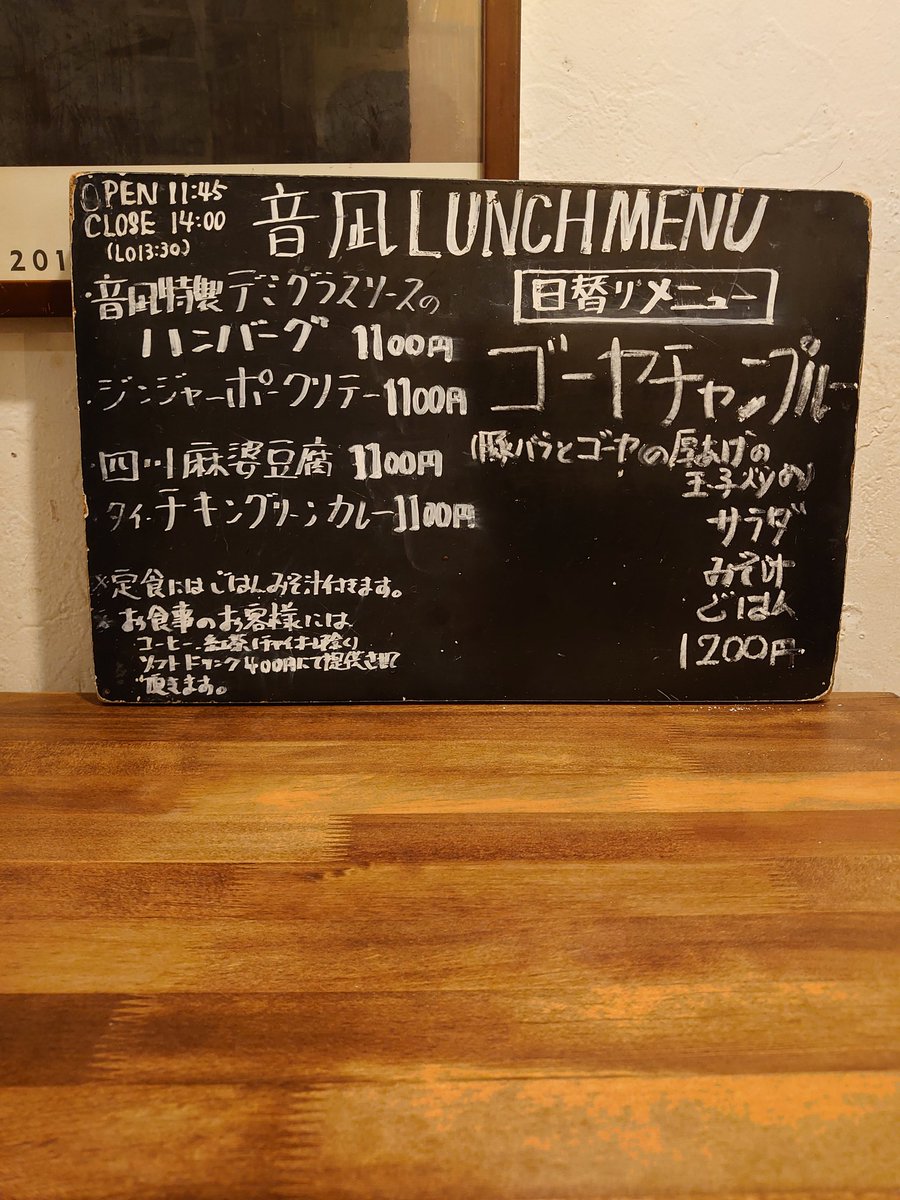 OPEN 11:45
CLOSE 14:00
(LO13:30)
音凪 LUNCH MENU
・音凪特製デミグラスソースの
ハンバーグ 1100円
・ジンジャーポークソテー 1100円
・四川麻婆豆腐 1100円
・タイ・チキングリーンカレー 1100円
※定食にはごはんみそ汁付きます。
※お食事のお客様には
コーヒー、紅茶(チャイオーレ除く)
ソフトドリンク400円にて提供させて
頂きます。
日替りメニュー
ゴーヤチャンプルー
(豚バラとゴーヤの厚あげの
玉子炒め)
サラダ
みそ汁
ごはん
1200円
201